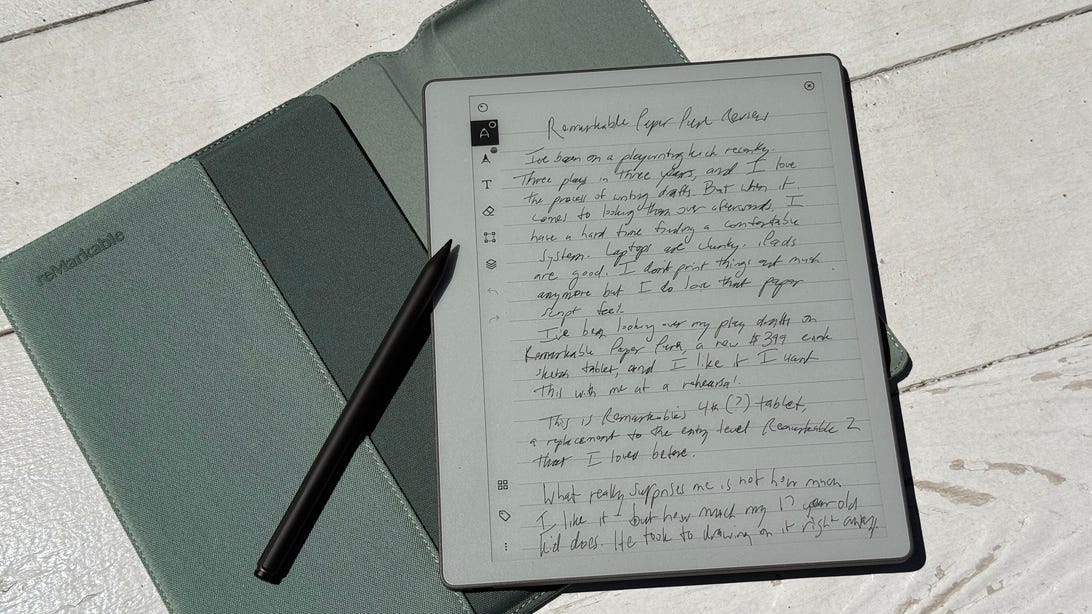 reMarkable
Remarkable Paper Pure Review
I've been on a playwriting kick recently.
Three plays in three years, and I love
the process of writing drafts. But when it
comes to looking them over afterwords, I
have a hard time finding a comfortable
system. Laptops are clunky. iPads
are good. I don't print things out much
anymore but I do love that paper
script feel.
I've been looking over my play drafts on
Remarkable Paper Pure, a new $399 eink
sketch tablet, and I like it I want
this with me at a rehearsal.
This is Remarkable's 4th (?) tablet,
a replacement to the entry level Remarkable 2
that I loved before.
What really surprises me is not how much
I like it - but how much my 17 year old
kid does. He took to drawing on it right away.
T